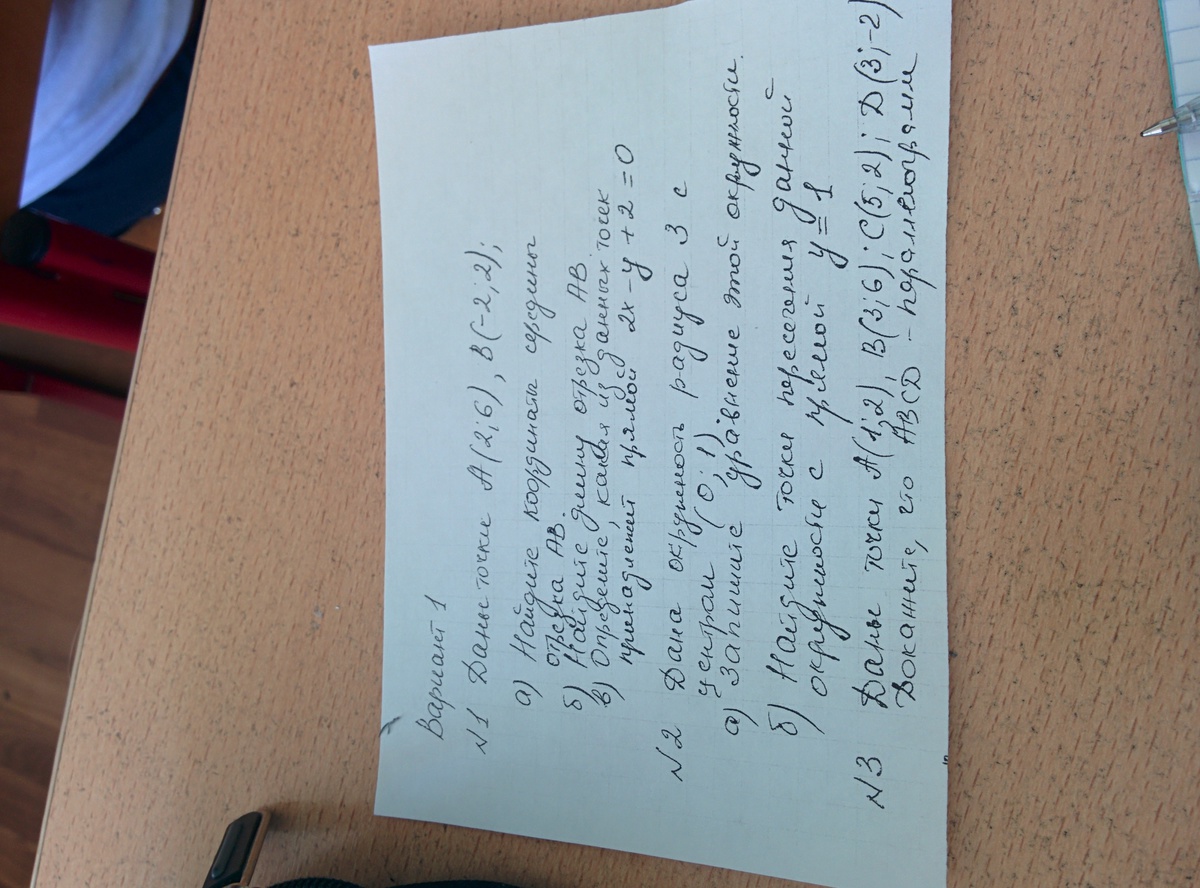 Вариант 1
N1 Даны точки A(2;6), B(-2;2);
а) Найдите координаты середины
отрезка AB.
б) Найдите длину отрезка AB.
в) Определите, какая из данных точек
принадлежит прямой 2x-y+2=0
N2 Дана окружность радиуса 3 с
центром (0;1)
а) Запишите уравнение этой окружности.
б) Найдите точки пересечения данной
окружности с прямой y=1
N3 Даны точки A(1;2), B(3;6); C(5;2); D(3;-2)
Докажите, что ABCD - параллелограмм